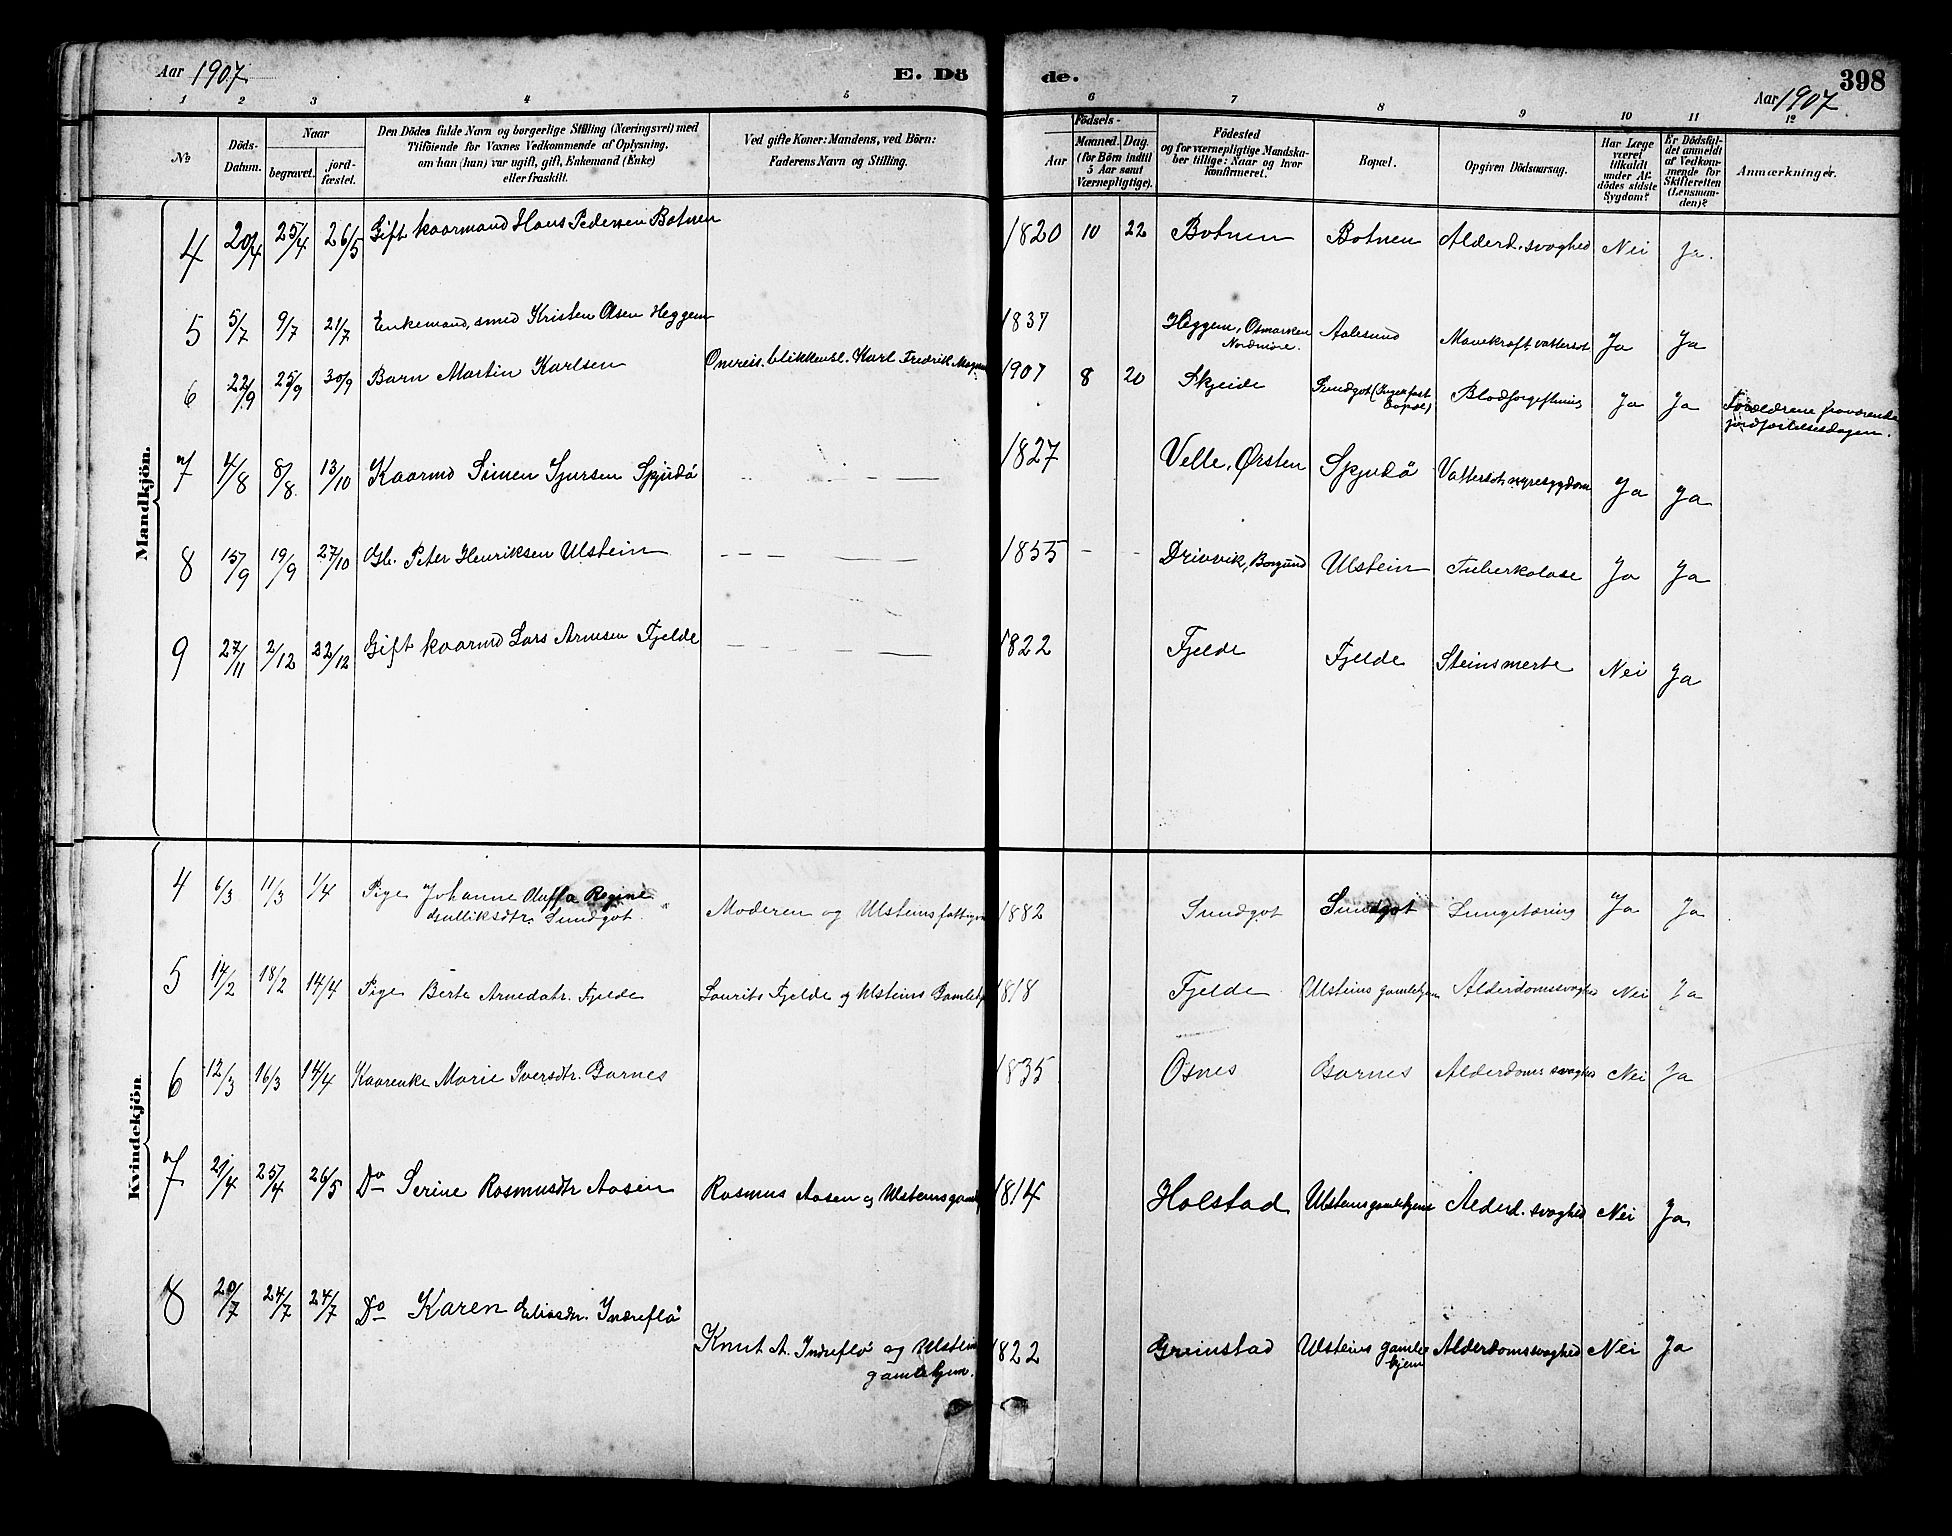 Aar 1907. E. Dö de. Aar 1907. 398
1 2 3 4 5 6 7 8 9 10 11 12
No Döds-Datum. Naar begravet. jordfæstet. Den Dödes fulde Navn og borgerlige Stilling (Næringsvei) med Tilföiende for Voxnes Vedkommende af Oplysning, om han (hun) var ugift, gift, Enkemand (Enke) eller fraskilt. Ved gifte Koner: Mandens, ved Börn: Faderens Navn og Stilling. Födsels- Aar Maaned. Dag. (for Börn indtil 5 Aar samt Værnepligtige). Födested og for værnepligtige Mandskaber tillige: Naar og hvor konfirmeret. Bopæl. Opgiven Dödsaarsag. Har Læge været tilkaldt under Afdödes sidste Sygdom? Er Dödsfaldet anmeldt af Vedkommende for Skifteretten (Lensmanden)? Anmærkninger.
Mandkjön.
4 20/4 25/4 26/5 Gift kaarmand Hans Pedersen Botnen 1820 10 22 Botnen Botnen Alderd. svaghed Nei Ja.
5 5/7 9/7 21/7 Enkemand, smed Kristen Olsen Heggem 1837 Heggem, Osmarken Nordmöre. Aalesund Mavekræft vattersot Ja Ja
6 22/9 25/9 30/9 Barn Martin Karlsen Omreis. blikkensl. Karl Fredrik 1907 8 20 Skjeide Sundgot (Ingen fast Bopæl) Blodforgiftning Ja Ja Forældrene fraværende jordfæstelsesdagen.
7 4/8 8/8. 13/10 Kaarmd Simen Sjursen Spjudö 1827 Velle, Örsten Spjudö Vattersot nyresygdom Ja Ja
8 15/9 19/9 27/10 Gb. Peter Henriksen Ulstein 1855 Drivvik, Borgund Ulstein Tuberkolose Ja Ja
9 27/11 2/12 22/12 Gift kaarmd Lars Arnesen Fjelde 1822 Fjelde Fjelde Steinsmerte Nei Ja
Kvindekjön.
4 6/3 11/3 1/4 Pige Johanne Oluffa Regine Sundgot. Moderen og Ulsteins 1882 Sundgot Sundgot Lungetæring Ja Ja
5 14/2 18/2 14/4 Pige Berte Arnedatr. Fjelde Laurits Fjelde og Ulsteins Gamlehj 1818 Fjelde Ulsteins gamlehjem Alderdomssvaghed Nei Ja
6 12/3 16/3 14/4 Kaarenke Marie Iversdtr. Garnes 1835 Osnes Garnes Alderdoms svaghed Nei Ja
7 21/4 25/4 26/5 Do Serine Rasmusdtr Aasen Rasmus Aasen og Ulsteins gamleh 1814 Holstad Ulsteins gamlehjem Alderd. svaghed Nei Ja
8 20/7 24/7 24/7 Do Karen Eliasdtr. Indreflö Knut A. Indreflö og Ulsteins gamlehjem. 1822 Grimstad Ulsteins gamle hjem Alderdomssvaghed Nei Ja